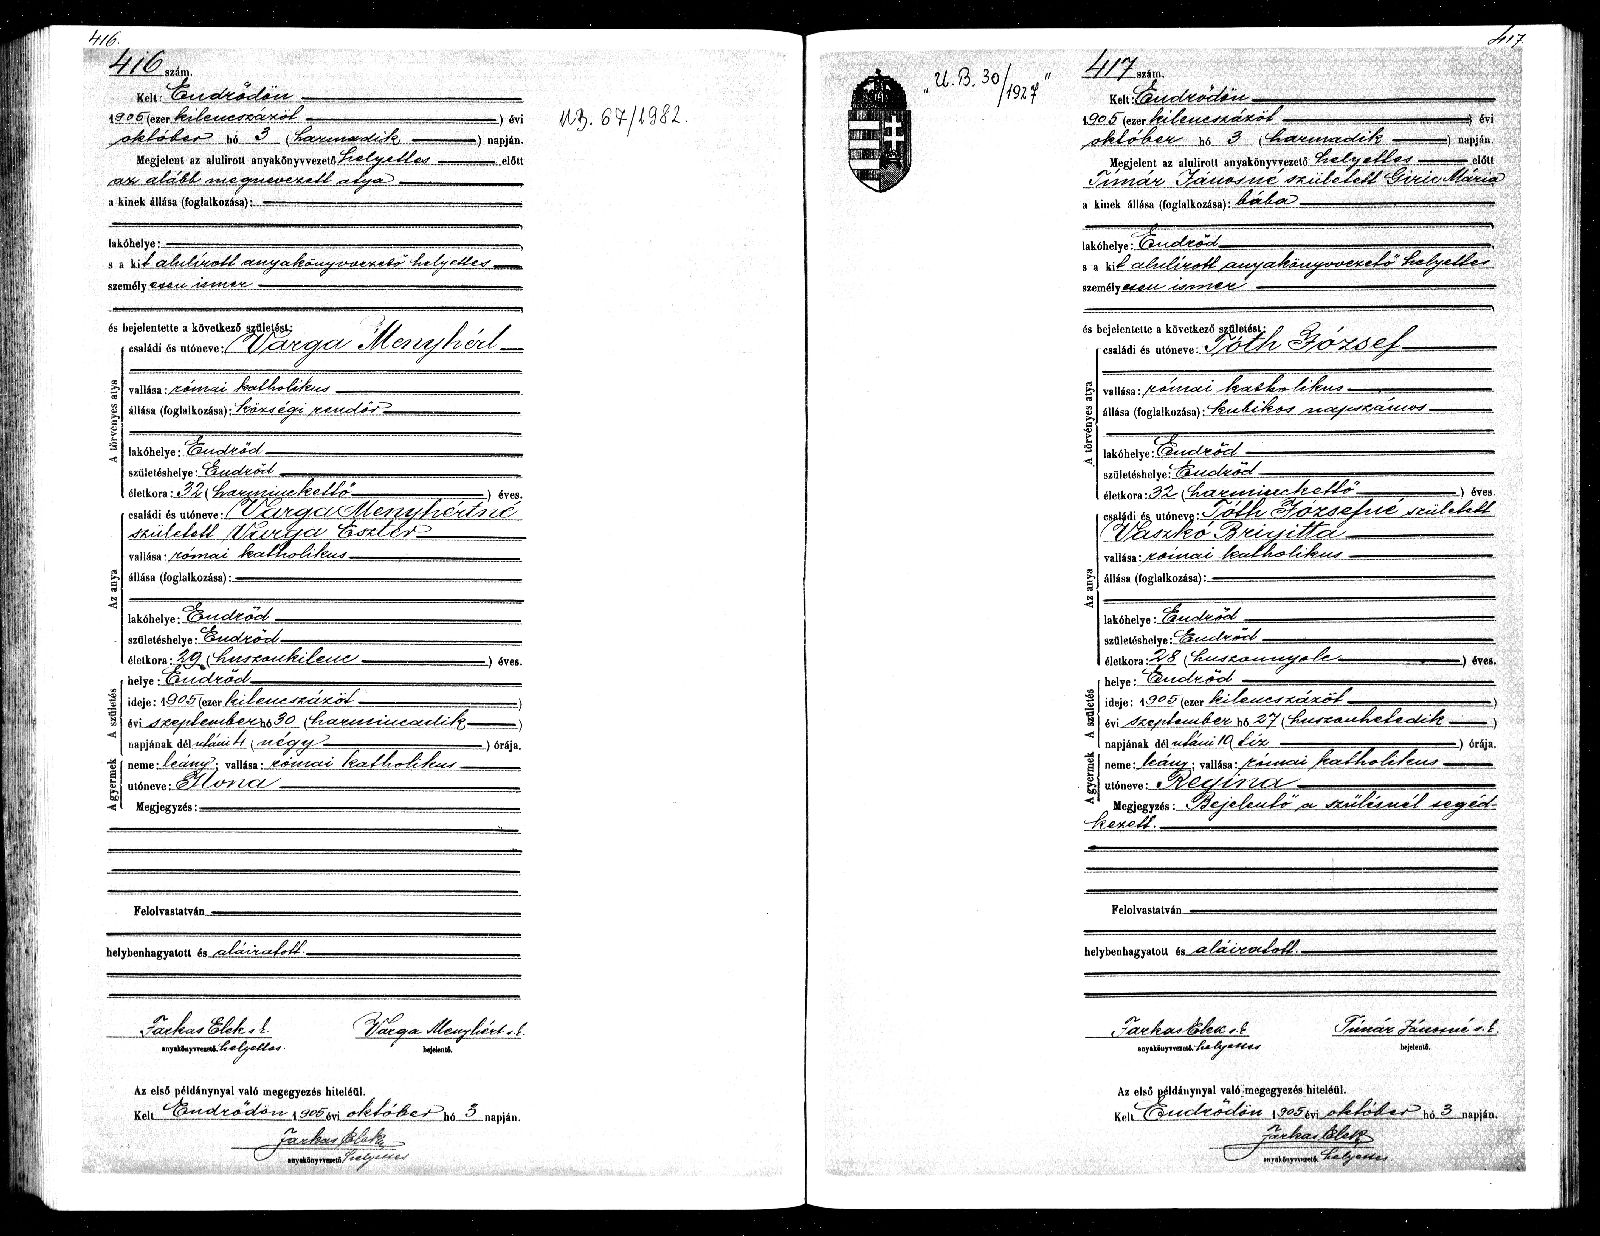 416.
416 szám.
Kelt: Endrődön
1905 (ezer kilencszázöt ) évi
október hó 3 (harmadik ) napján.
Megjelent az alulirott anyakönyvvezető helyettes előtt
az alább megnevezett atya
a kinek állása (foglalkozása):
lakóhelye:
s a kit alulírott anyakönyvvezető helyettes
személyesen ismer
és bejelentette a következő születést:
A törvényes atya
családi és utóneve: Varga Menyhért
vallása: római katholikus
állása (foglalkozása): községi rendőr
lakóhelye: Endrőd
születéshelye: Endrőd
életkora: 32 (harminckettő ) éves.
Az anya
családi és utóneve: Varga Menyhértné
született Varga Eszter
vallása: római katholikus
állása (foglalkozása):
lakóhelye: Endrőd
születéshelye: Endrőd
életkora: 29 (huszonkilenc ) éves.
A születés
helye: Endrőd
ideje: 1905 (ezer kilencszázöt )
évi szeptember hó 30 (harmincadik )
napjának dél utáni 4 (négy ) órája.
A gyermek
neme: leány; vallása: római katholikus
utóneve: Ilona
Megjegyzés:
Felolvastatván
helybenhagyatott és aláiratott.
Farkas Elek s. k. Varga Menyhért s. k.
anyakönyvvezető helyettes. bejelentő.
Az első példánynyal való megegyezés hiteléül.
Kelt Endrődön 1905 évi október hó 3 napján.
Farkas Elek
anyakönyvvezető helyettes
UB. 67/1982.
"U. B. 30/1927"
417.
417 szám.
Kelt: Endrődön
1905 (ezer kilencszázöt ) évi
október hó 3 (harmadik ) napján.
Megjelent az alulirott anyakönyvvezető helyettes előtt
Tímár Jánosné született Giric Mária
a kinek állása (foglalkozása): bába
lakóhelye: Endrőd
s a kit alulírott anyakönyvvezető helyettes
személyesen ismer
és bejelentette a következő születést:
A törvényes atya
családi és utóneve: Tóth József
vallása: római katholikus
állása (foglalkozása): kubikos napszámos
lakóhelye: Endrőd
születéshelye: Endrőd
életkora: 32 (harminckettő ) éves.
Az anya
családi és utóneve: Tóth Józsefné született
Vaszkó Brigitta
vallása: római katholikus
állása (foglalkozása):
lakóhelye: Endrőd
születéshelye: Endrőd
életkora: 28 (huszonnyolc ) éves.
A születés
helye: Endrőd
ideje: 1905 (ezer kilencszázöt )
évi szeptember hó 27 (huszonhetedik )
napjának dél utáni 10 (tíz ) órája.
A gyermek
neme: leány; vallása: római katholikus
utóneve: Regina
Megjegyzés: Bejelentő a szülésnél segéd-
kezett.
Felolvastatván
helybenhagyatott és aláiratott.
Farkas Elek s. k. Tímár Jánosné s. k.
anyakönyvvezető helyettes bejelentő.
Az első példánynyal való megegyezés hiteléül.
Kelt Endrődön 1905 évi október hó 3 napján.
Farkas Elek
anyakönyvvezető helyettes